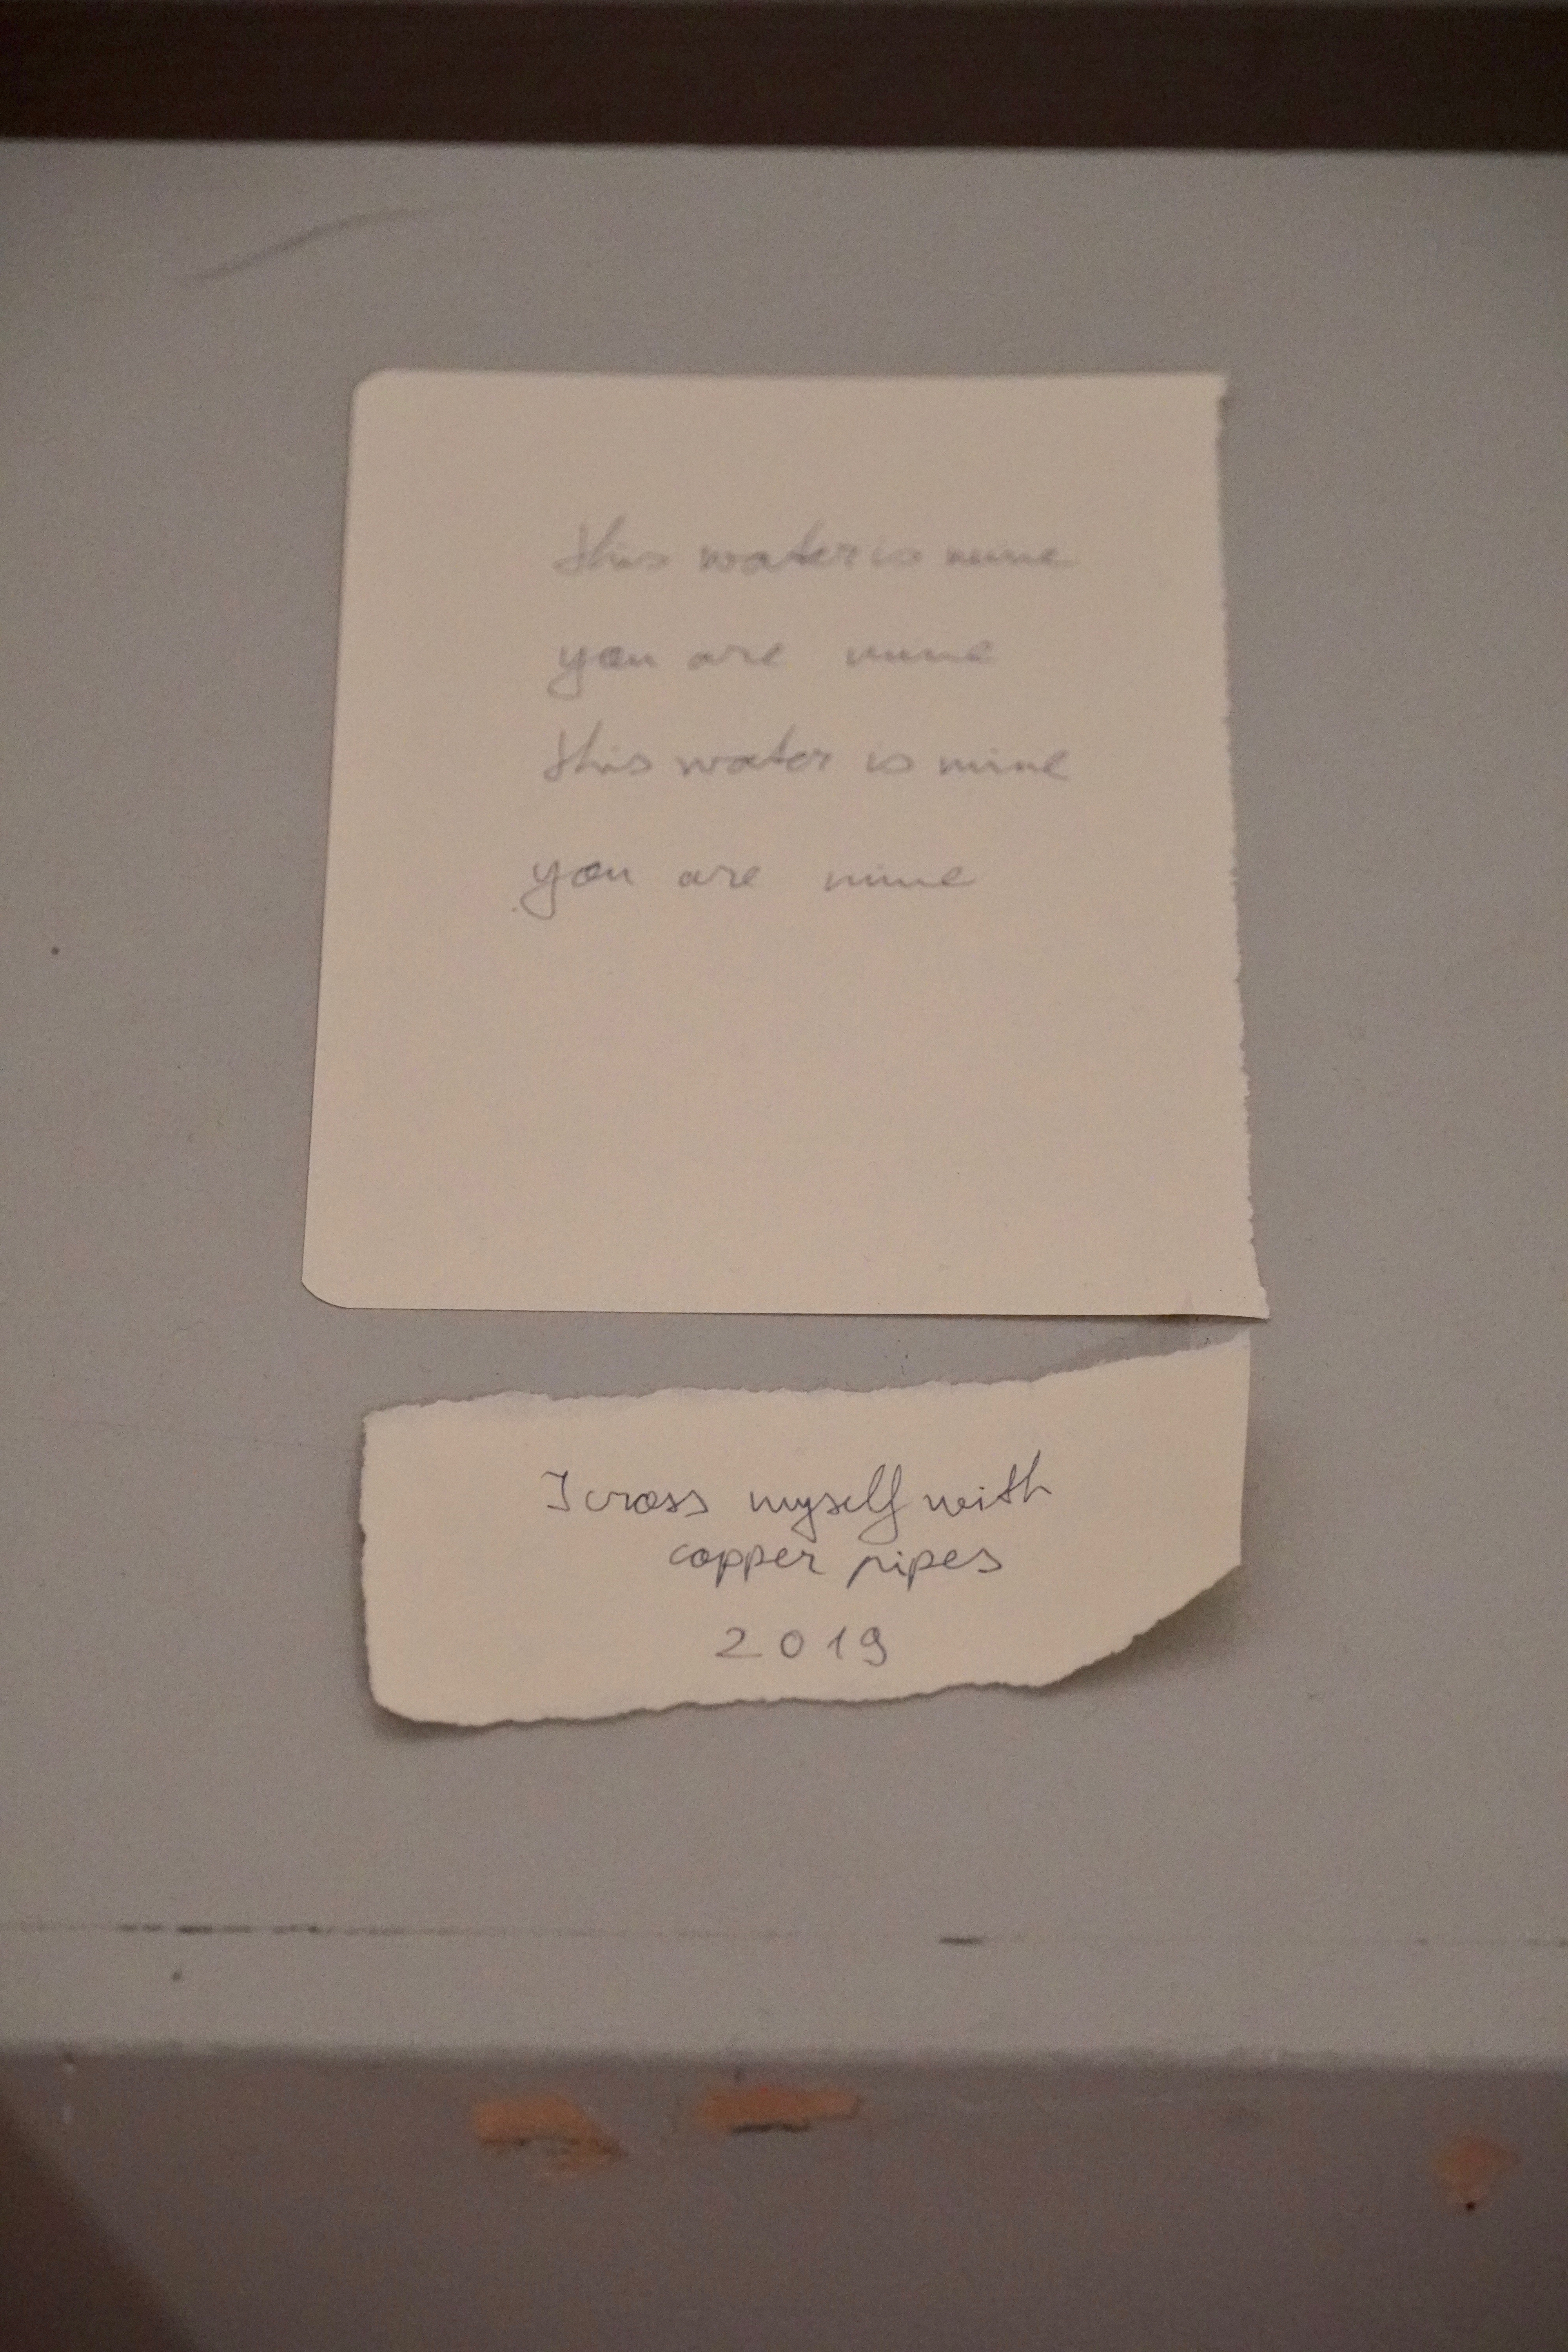 this water is mine
you are mine
this water is mine
you are mine
I cross myself with
copper pipes
2019